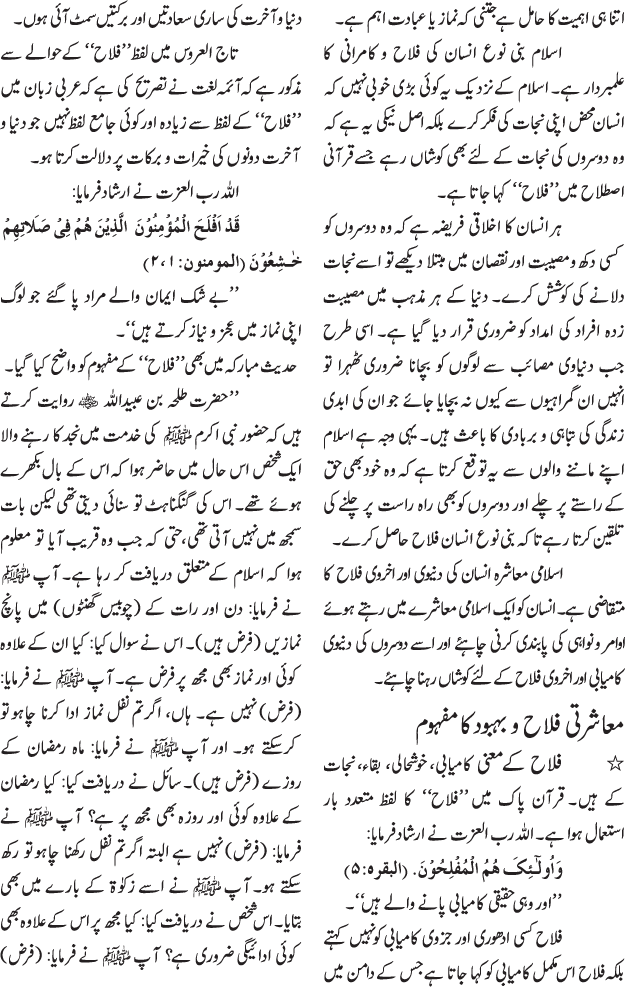 اتنا ہی اہمیت کا حامل ہے جتنی کہ نماز یا عبادت اہم ہے۔
اسلام بنی نوع انسان کی فلاح و کامرانی کا
علمبردار ہے۔ اسلام کے نزدیک یہ کوئی بڑی خوبی نہیں کہ
انسان محض اپنی نجات کی فکر کرے بلکہ اصل نیکی یہ ہے کہ
وہ دوسروں کی نجات کے لئے بھی کوشاں رہے جسے قرآنی
اصطلاح میں ’’فلاح‘‘ کہا جاتا ہے۔
ہر انسان کا اخلاقی فریضہ ہے کہ وہ دوسروں کو
کسی دکھ و مصیبت اور نقصان میں مبتلا دیکھے تو اسے نجات
دلانے کی کوشش کرے۔ دنیا کے ہر مذہب میں مصیبت
زدہ افراد کی امداد کو ضروری قرار دیا گیا ہے۔ اسی طرح
جب دنیاوی مصائب سے لوگوں کو بچانا ضروری ٹھہرا تو
انہیں ان گمراہیوں سے کیوں نہ بچایا جائے جو ان کی ابدی
زندگی کی تباہی و بربادی کا باعث ہیں۔ یہی وجہ ہے اسلام
اپنے ماننے والوں سے یہ توقع کرتا ہے کہ وہ خود بھی حق
کے راستے پر چلے اور دوسروں کو بھی راہ راست پر چلنے کی
تلقین کرتا رہے تا کہ بنی نوع انسان فلاح حاصل کرے۔
اسلامی معاشرہ انسان کی دنیوی اور اخروی فلاح کا
متقاضی ہے۔ انسان کو ایک اسلامی معاشرے میں رہتے ہوئے
اوامر و نواہی کی پابندی کرنی چاہئے اور اسے دوسروں کی دنیوی
کامیابی اور اخروی فلاح کے لئے کوشاں رہنا چاہئے۔
معاشرتی فلاح و بہبود کا مفہوم
☆ فلاح کے معنی کامیابی، خوشحالی، بقاء، نجات
کے ہیں۔ قرآن پاک میں ’’فلاح‘‘ کا لفظ متعدد بار
استعمال ہوا ہے۔ اللہ رب العزت نے ارشاد فرمایا:
وَاُولٰٓـئِکَ هُمُ الْمُفْلِحُوْنَ. (البقره:۵)
’’اور وہی حقیقی کامیابی پانے والے ہیں‘‘۔
فلاح کسی ادھوری اور جزوی کامیابی کو نہیں کہتے
بلکہ فلاح اس مکمل کامیابی کو کہا جاتا ہے جس کے دامن میں
دنیا و آخرت کی ساری سعادتیں اور برکتیں سمٹ آئی ہوں۔
تاج العروس میں لفظ ’’فلاح‘‘ کے حوالے سے
مذکور ہے کہ آئمہ لغت نے تصریح کی ہے کہ عربی زبان میں
’’فلاح‘‘ کے لفظ سے زیادہ اور کوئی جامع لفظ نہیں جو دنیا و
آخرت دونوں کی خیرات و برکات پر دلالت کرتا ہو۔
اللہ رب العزت نے ارشاد فرمایا:
قَدْ اَفْلَحَ الْمُؤْمِنُوْنَ الَّذِيْنَ هُمْ فِيْ صَلَاتِهِمْ
خٰشِعُوْنَ (المومنون:۱،۲)
’’بے شک ایمان والے مراد پا گئے جو لوگ
اپنی نماز میں عجز و نیاز کرتے ہیں‘‘۔
حدیث مبارکہ میں بھی ’’فلاح‘‘ کے مفہوم کو واضح کیا گیا۔
’’حضرت طلحہ بن عبیداللہ رضی اللہ عنہ روایت کرتے
ہیں کہ حضور نبی اکرم ﷺ کی خدمت میں نجد کا رہنے والا
ایک شخص اس حال میں حاضر ہوا کہ اس کے بال بکھرے
ہوئے تھے۔ اس کی گنگناہٹ تو سنائی دیتی تھی لیکن بات
سمجھ میں نہیں آتی تھی، حتی کہ جب وہ قریب آیا تو معلوم
ہوا کہ اسلام کے متعلق دریافت کر رہا ہے۔ آپ ﷺ
نے فرمایا: دن اور رات کے (چوبیس گھنٹوں) میں پانچ
نمازیں (فرض ہیں)۔ اس نے سوال کیا: کیا ان کے علاوہ
کوئی اور نماز بھی مجھ پر فرض ہے۔ آپ ﷺ نے فرمایا:
(فرض) نہیں ہے۔ ہاں، اگر تم نفل نماز ادا کرنا چاہو تو
کرسکتے ہو۔ اور آپ ﷺ نے فرمایا: ماہ رمضان کے
روزے (فرض ہیں)۔ سائل نے دریافت کیا: کیا رمضان
کے علاوہ کوئی اور روزہ بھی مجھ پر ہے؟ آپ ﷺ نے
فرمایا: (فرض) نہیں ہے البتہ اگر تم نفل رکھنا چاہو تو رکھ
سکتے ہو۔ آپ ﷺ نے اسے زکوٰۃ کے بارے میں بھی
بتایا۔ اس شخص نے دریافت کیا: کیا مجھ پر اس کے علاوہ بھی
کوئی ادائیگی ضروری ہے؟ آپ ﷺ نے فرمایا: (فرض)